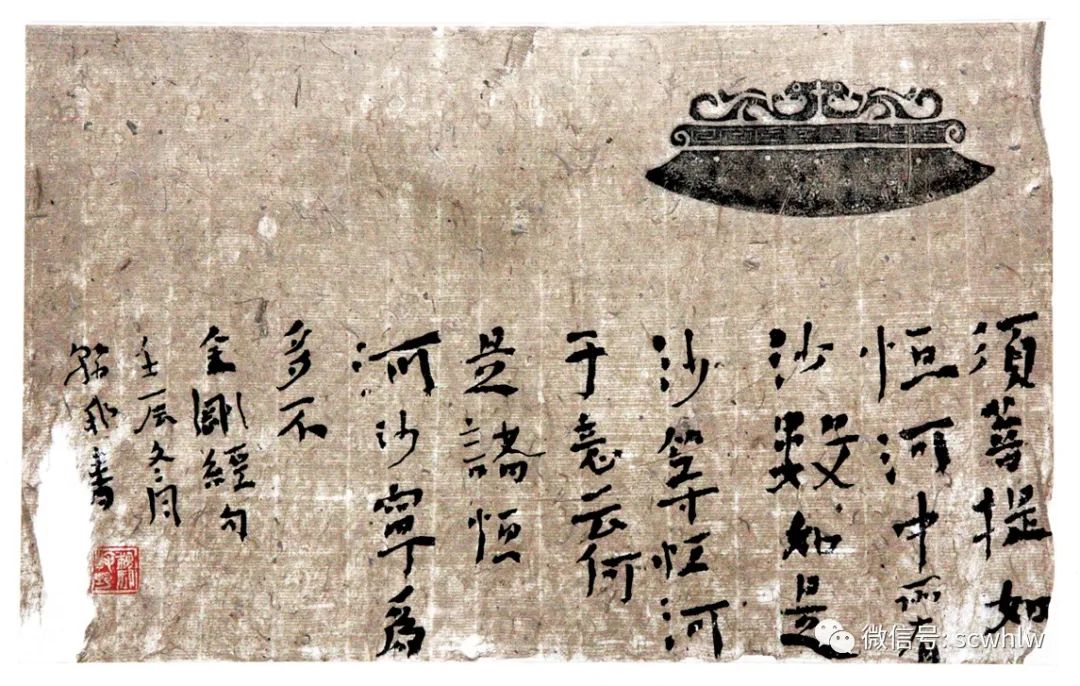 須菩提如
恒河中所有
沙數如是
沙等恒河
于意云何
是諸恒
河沙寧為
多不
金剛經句
壬辰冬月
書
微信号: scwhlw